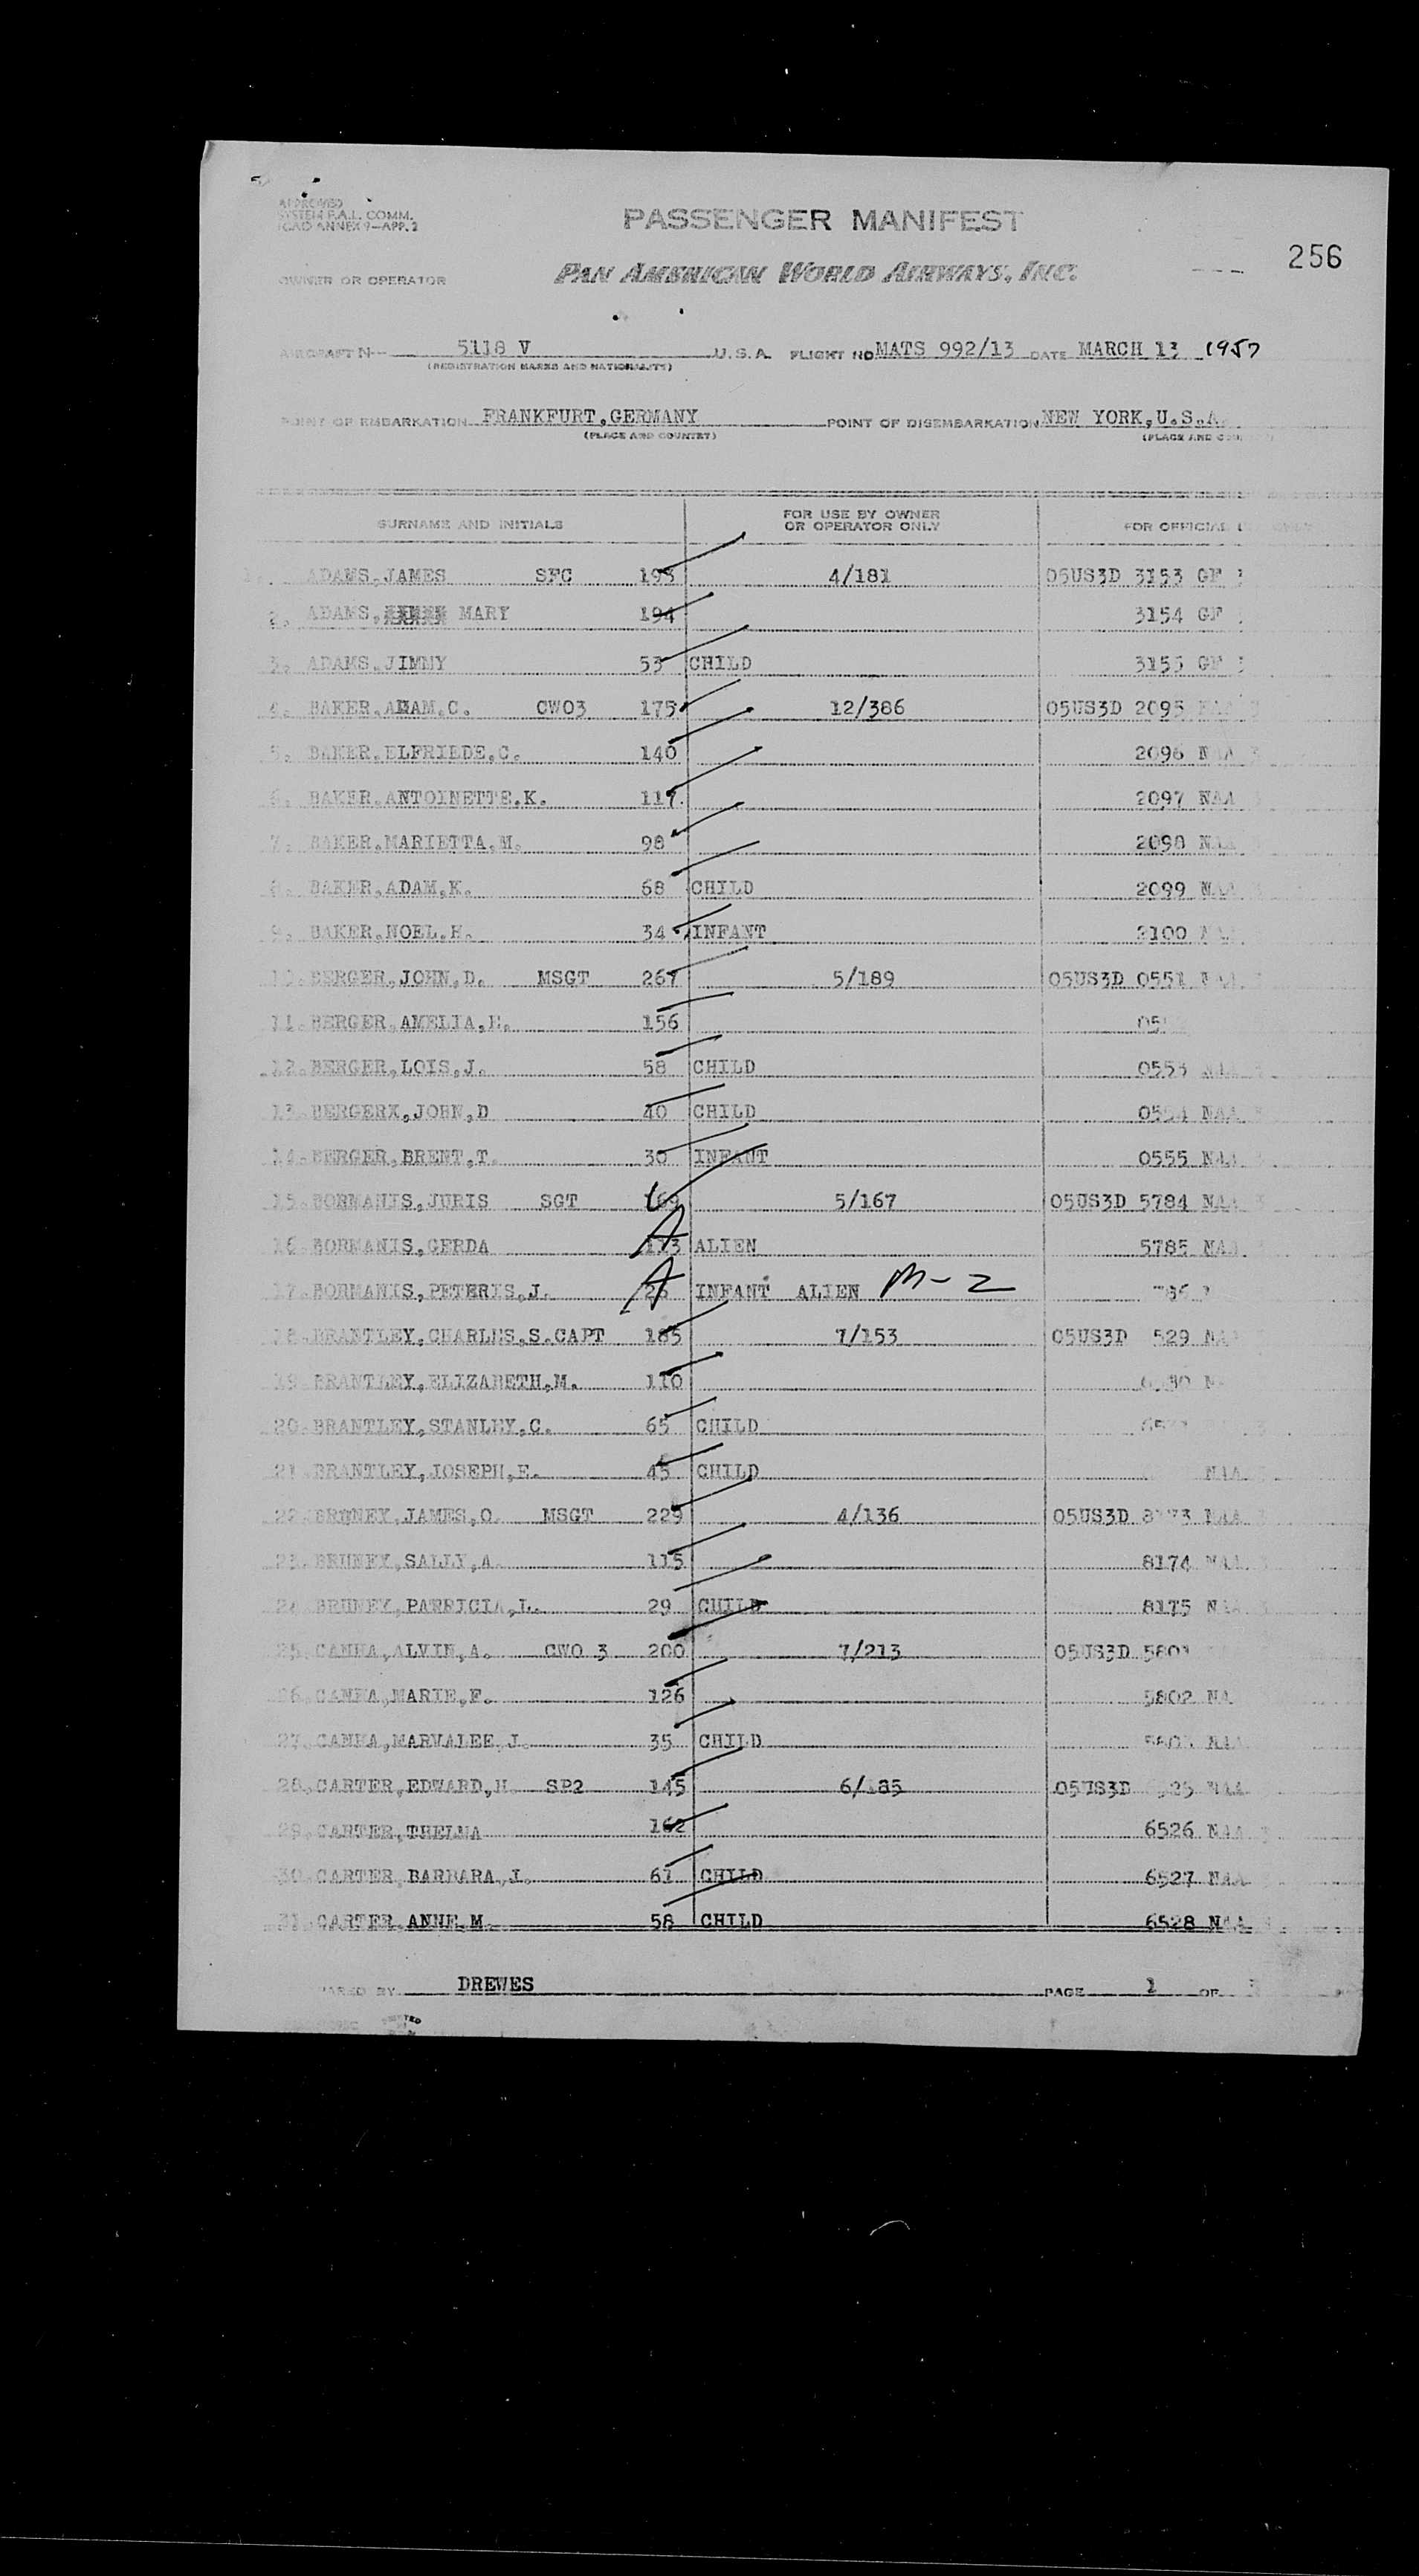 APPROVED
SYSTEM F.A.L. COMM.
ICAO ANNEX 9-APP. 2
PASSENGER MANIFEST
256
OWNER OR OPERATOR PAN AMERICAN WORLD AIRWAYS, INC.
AIRCRAFT N 5118 V U.S.A. FLIGHT NO MATS 992/13 DATE MARCH 13 1957
(REGISTRATION MARKS AND NATIONALITY)
POINT OF EMBARKATION FRANKFURT,GERMANY POINT OF DISEMBARKATION NEW YORK,U.S.A.
(PLACE AND COUNTRY) (PLACE AND
SURNAME AND INITIALS FOR USE BY OWNER OR OPERATOR ONLY FOR OFFICIAL
1. ADAMS,JAMES SFC 193 4/181 05US3D 3153 GF
2. ADAMS, MARY 194 3154 GF
3. ADAMS,JIMMY 53 CHILD 3155 GF
4. BAKER,ADAM,C. CWO3 175 12/386 05US3D 2095 NAA
5. BAKER,ELFRIEDE,C. 140 2096 NAA
6. BAKER,ANTOINETTE,K. 117 2097 NAA
7. BAKER,MARIETTA,M. 98 2098 NAA
8. BAKER,ADAM,K. 68 CHILD 2099 NAA
9. BAKER,NOEL,H. 34 INFANT 2100
10. BERGER,JOHN,D. MSGT 267 5/189 05US3D 0551
11. BERGER,AMELIA,E. 156
12. BERGER,LOIS,J. 58 CHILD 0553 NAA
13. BERGERX,JOHN,D 40 CHILD 0554 NAA
14. BERGER,BRENT,T. 30 INFANT 0555 NAA
15. BORMANIS,JURIS SGT 169 5/167 05US3D 5784 NAA
16. BORMANIS,GERDA A 113 ALIEN 5785 NAA
17. BORMANIS,PETERIS,J. A INFANT ALIEN M-2
18. BRANTLEY,CHARLES,S.CAPT 185 7/153 05US3D 529 NAA
19. BRANTLEY,ELIZABETH,M. 110
20. BRANTLEY,STANLEY,C. 65 CHILD
21. BRANTLEY,JOSEPH,E. 45 CHILD NAA
22. BRUNEY,JAMES,O. MSGT 229 4/136 05US3D 8173 NAA
23. BRUNEY,SALLY,A. 115 8174 NAA
24. BRUNEY,PATRICIA,L. 29 CHILD 8175
25. CAMHA,ALVIN,A. CWO 3 200 7/213 05US3D 5801
26. CAMHA,MARIE,F. 126 5802 NA
27. CAMHA,MARVALEE,J. 35 CHILD NAA
28. CARTER,EDWARD,H. SP2 145 6/185 05US3D NAA
29. CARTER,THELMA 162 6526 NAA
30. CARTER,BARBARA,J. 67 CHILD 6527 NAA
31. CARTER,ANNE,M. 58 CHILD 6528 NAA
BY DREWES PAGE 1 OF